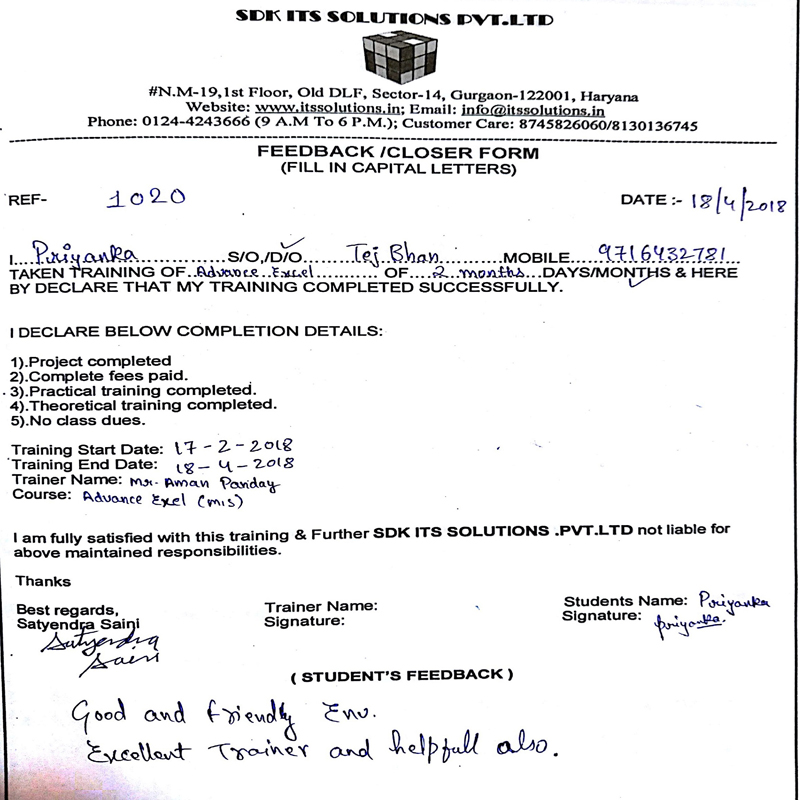 SDK ITS SOLUTIONS PVT.LTD
#N.M-19,1st Floor, Old DLF, Sector-14, Gurgaon-122001, Haryana
Website: www.itssolutions.in; Email: info@itssolutions.in
Phone: 0124-4243666 (9 A.M To 6 P.M.); Customer Care: 8745826060/8130136745
FEEDBACK /CLOSER FORM
(FILL IN CAPITAL LETTERS)
REF- 1020 DATE :- 18/4/2018
I....Priyanka................S/O,/D/O........Tej Bhan..........MOBILE....9716432781...
TAKEN TRAINING OF..Advance..Excel........... OF....2 months...DAYS/MONTHS & HERE
BY DECLARE THAT MY TRAINING COMPLETED SUCCESSFULLY.
I DECLARE BELOW COMPLETION DETAILS:
1).Project completed
2).Complete fees paid.
3).Practical training completed.
4).Theoretical training completed.
5).No class dues.
Training Start Date: 17-2-2018
Training End Date: 18-4-2018
Trainer Name: Mr. Aman Panday
Course: Advance Exel (MIS)
I am fully satisfied with this training & Further SDK ITS SOLUTIONS .PVT.LTD not liable for
above maintained responsibilities.
Thanks
Best regards, Trainer Name: Students Name: Priyanka
Satyendra Saini Signature: Signature: Priyanka.
Satyendra
Saini
( STUDENT'S FEEDBACK )
Good and friendly Env.
Excellent Trainer and helpfull also.